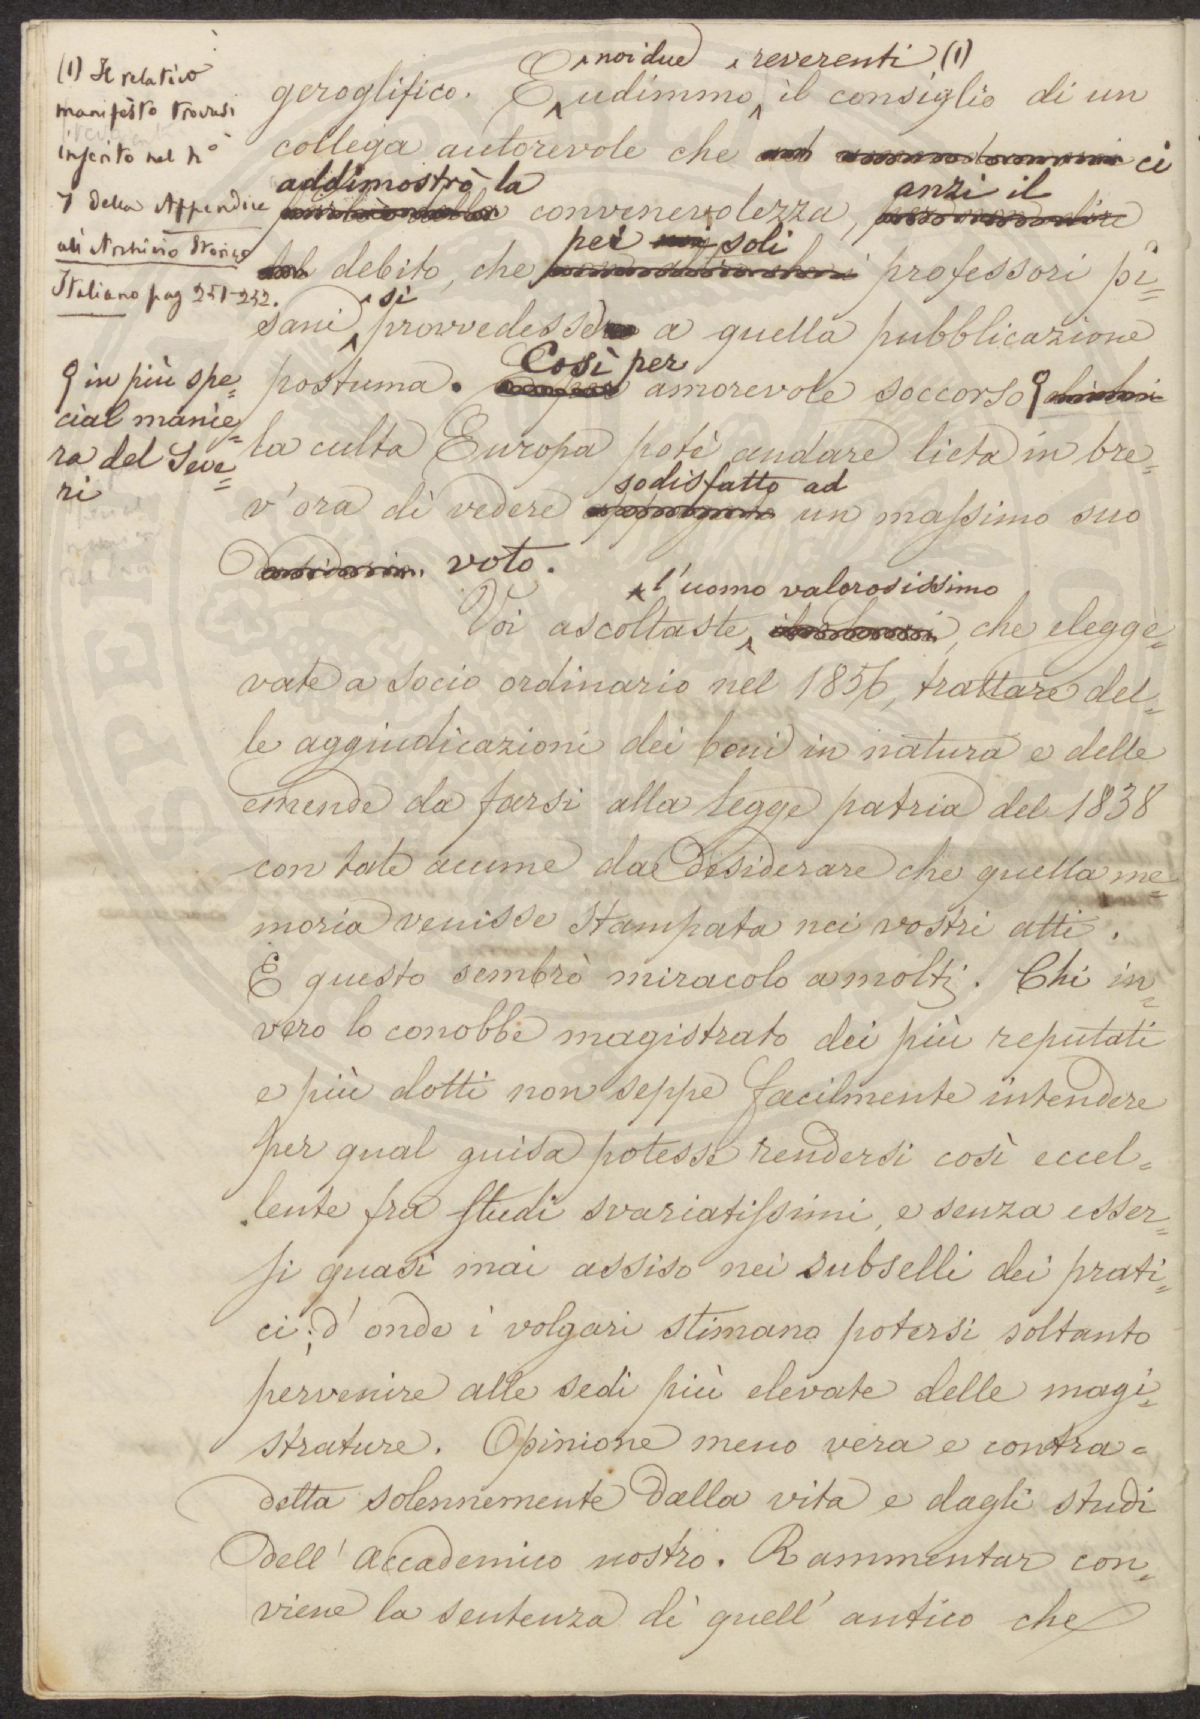 (1) Il relativo
manifesto trovasi
inserito nel nº
7 della Appendice
all'Archivio Storico
Italiano pag 251-252.
noi due reverenti (1)
geroglifico. E udimmo il consiglio di un
collega autorevole che ci
addimostrò la anzi il
convenevolezza,
per soli
debito, che professori pi=
si
sani provvedesse a quella pubblicazione
Così per
postuma. amorevole soccorso
in più spe=
cial manie=
ra del Seve=
ri
la culta Europa potè andare lieta in bre=
sodisfatto ad
v'ora di vedere un massimo suo
voto.
l'uomo valorosissimo
Voi ascoltaste, che elegge=
vate a socio ordinario nel 1856, trattare del=
le aggiudicazioni dei beni in natura e delle
emende da farsi alla legge patria del 1838
con tale acume da desiderare che quella me=
moria venisse stampata nei vostri atti.
E questo sembrò miracolo a molti. Chi in=
vero lo conobbe magistrato dei più reputati
e più dotti non seppe facilmente intendere
per qual guisa potesse rendersi così eccel=
lente fra studi svariatissimi, e senza esser=
si quasi mai assiso nei subselli dei prati=
ci; d'onde i volgari stimano potersi soltanto
pervenire alle sedi più elevate delle magi=
strature. Opinione meno vera e contra=
detta solennemente dalla vita e dagli studi
dell'accademico nostro. Rammentar con=
viene la sentenza di quell'antico che